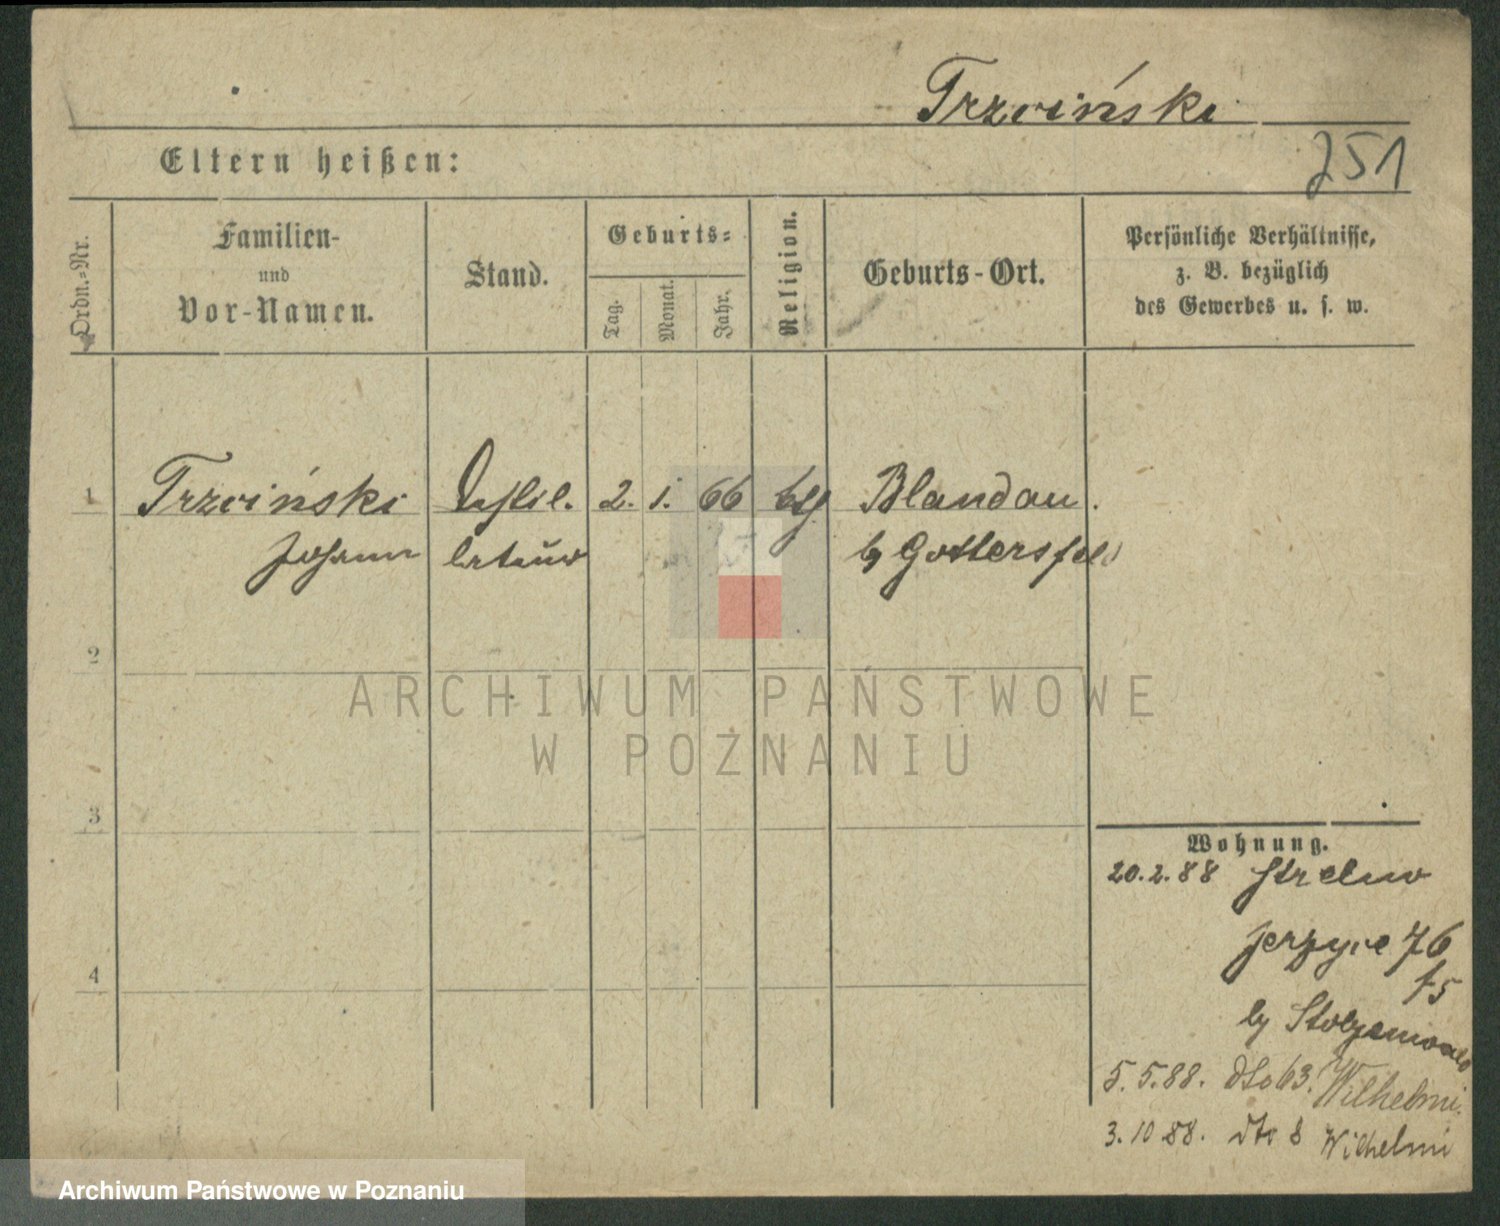 Trzciński
251
Eltern heißen:
Ordn.-Nr.
Familien-
und
Vor-Namen.
Stand.
Geburts-
Tag.
Monat.
Jahr.
Religion.
Geburts-Ort.
Persönliche Verhältnisse,
z. B. bezüglich
des Gewerbes u. s. w.
1 Trzciński Destil. 2. 1. 66 ktħ Blandau.
Johann lateur b/ Gottersfeld
2
3
4
Wohnung.
20.2.88 Strelno
Jerzyce 76
b/ Stolzenwald
5. 5.88. dto 63. Wilhelmi.
3. 10 88. dto 8 Wilhelmi
ARCHIWUM PAŃSTWOWE
W POZNANIU
Archiwum Państwowe w Poznaniu